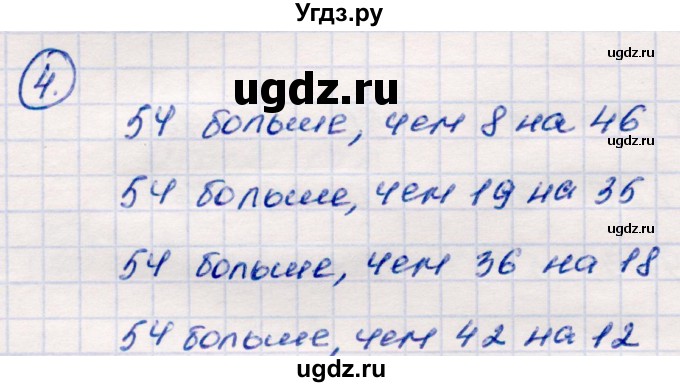 Угдз.ру
ugdz.ru
ugdz.ru
4.
54 больше, чем 8 на 46
ugdz.ru
54 больше, чем 19 на 35
ugdz.ru
54 больше, чем 36 на 18
54 больше, чем 42 на 12
ugdz.ru
ugdz.ru